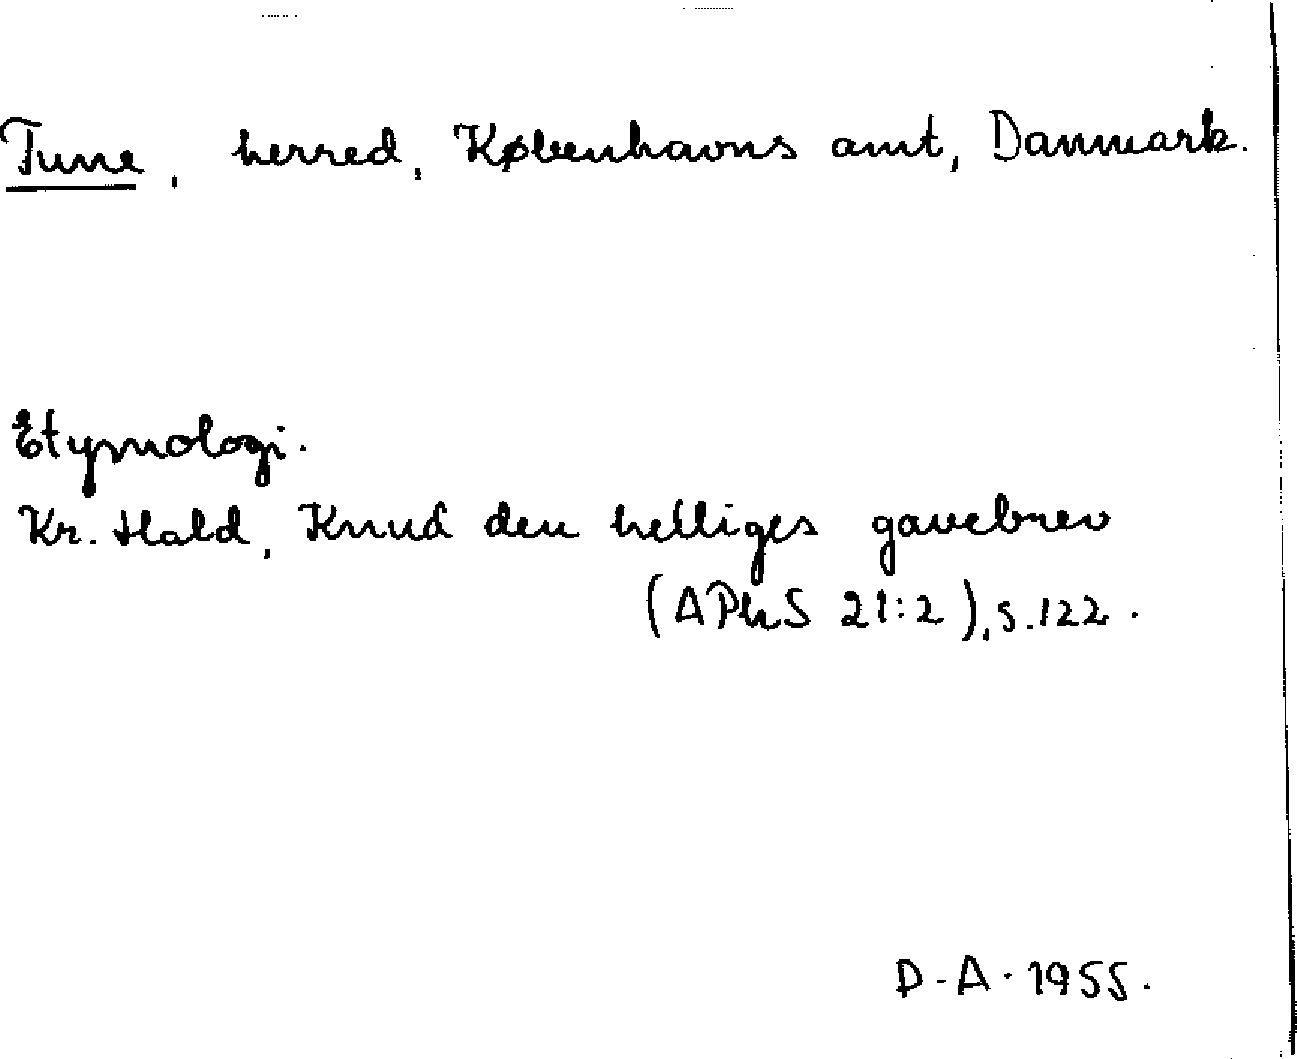 Tune, herred, Københavns amt, Danmark.
Etymologi.
Kr. Hald, Knud den helliges gavebrev
(APhS 21:2), s. 122.
D-A. 1955.